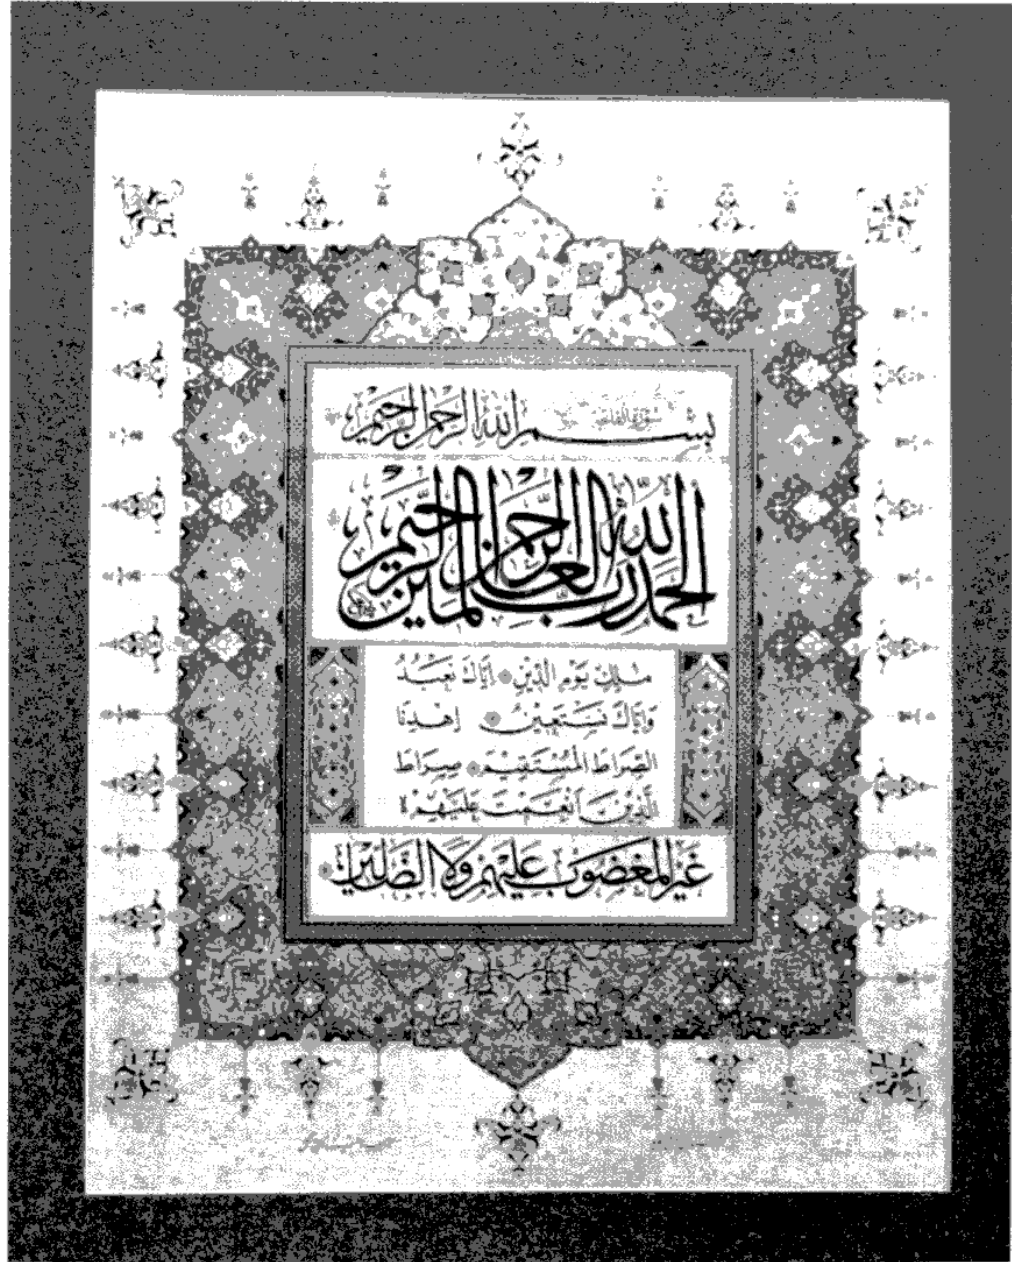 سورة الفاتحة
بِسْمِ اللهِ الرَّحْمٰنِ الرَّحِيْمِ
اَلْحَمْدُ لِلّٰهِ رَبِّ الْعَالَمِيْنَ الرَّحْمٰنِ الرَّحِيْمِ
مٰلِكِ يَوْمِ الدِّيْنِ اِيَّاكَ نَعْبُدُ
وَاِيَّاكَ نَسْتَعِيْنُ اِهْدِنَا
الصِّرَاطَ الْمُسْتَقِيْمَ صِرَاطَ
الَّذِيْنَ اَنْعَمْتَ عَلَيْهِمْ
غَيْرِ الْمَغْضُوْبِ عَلَيْهِمْ وَلَا الضَّالِّيْنَ